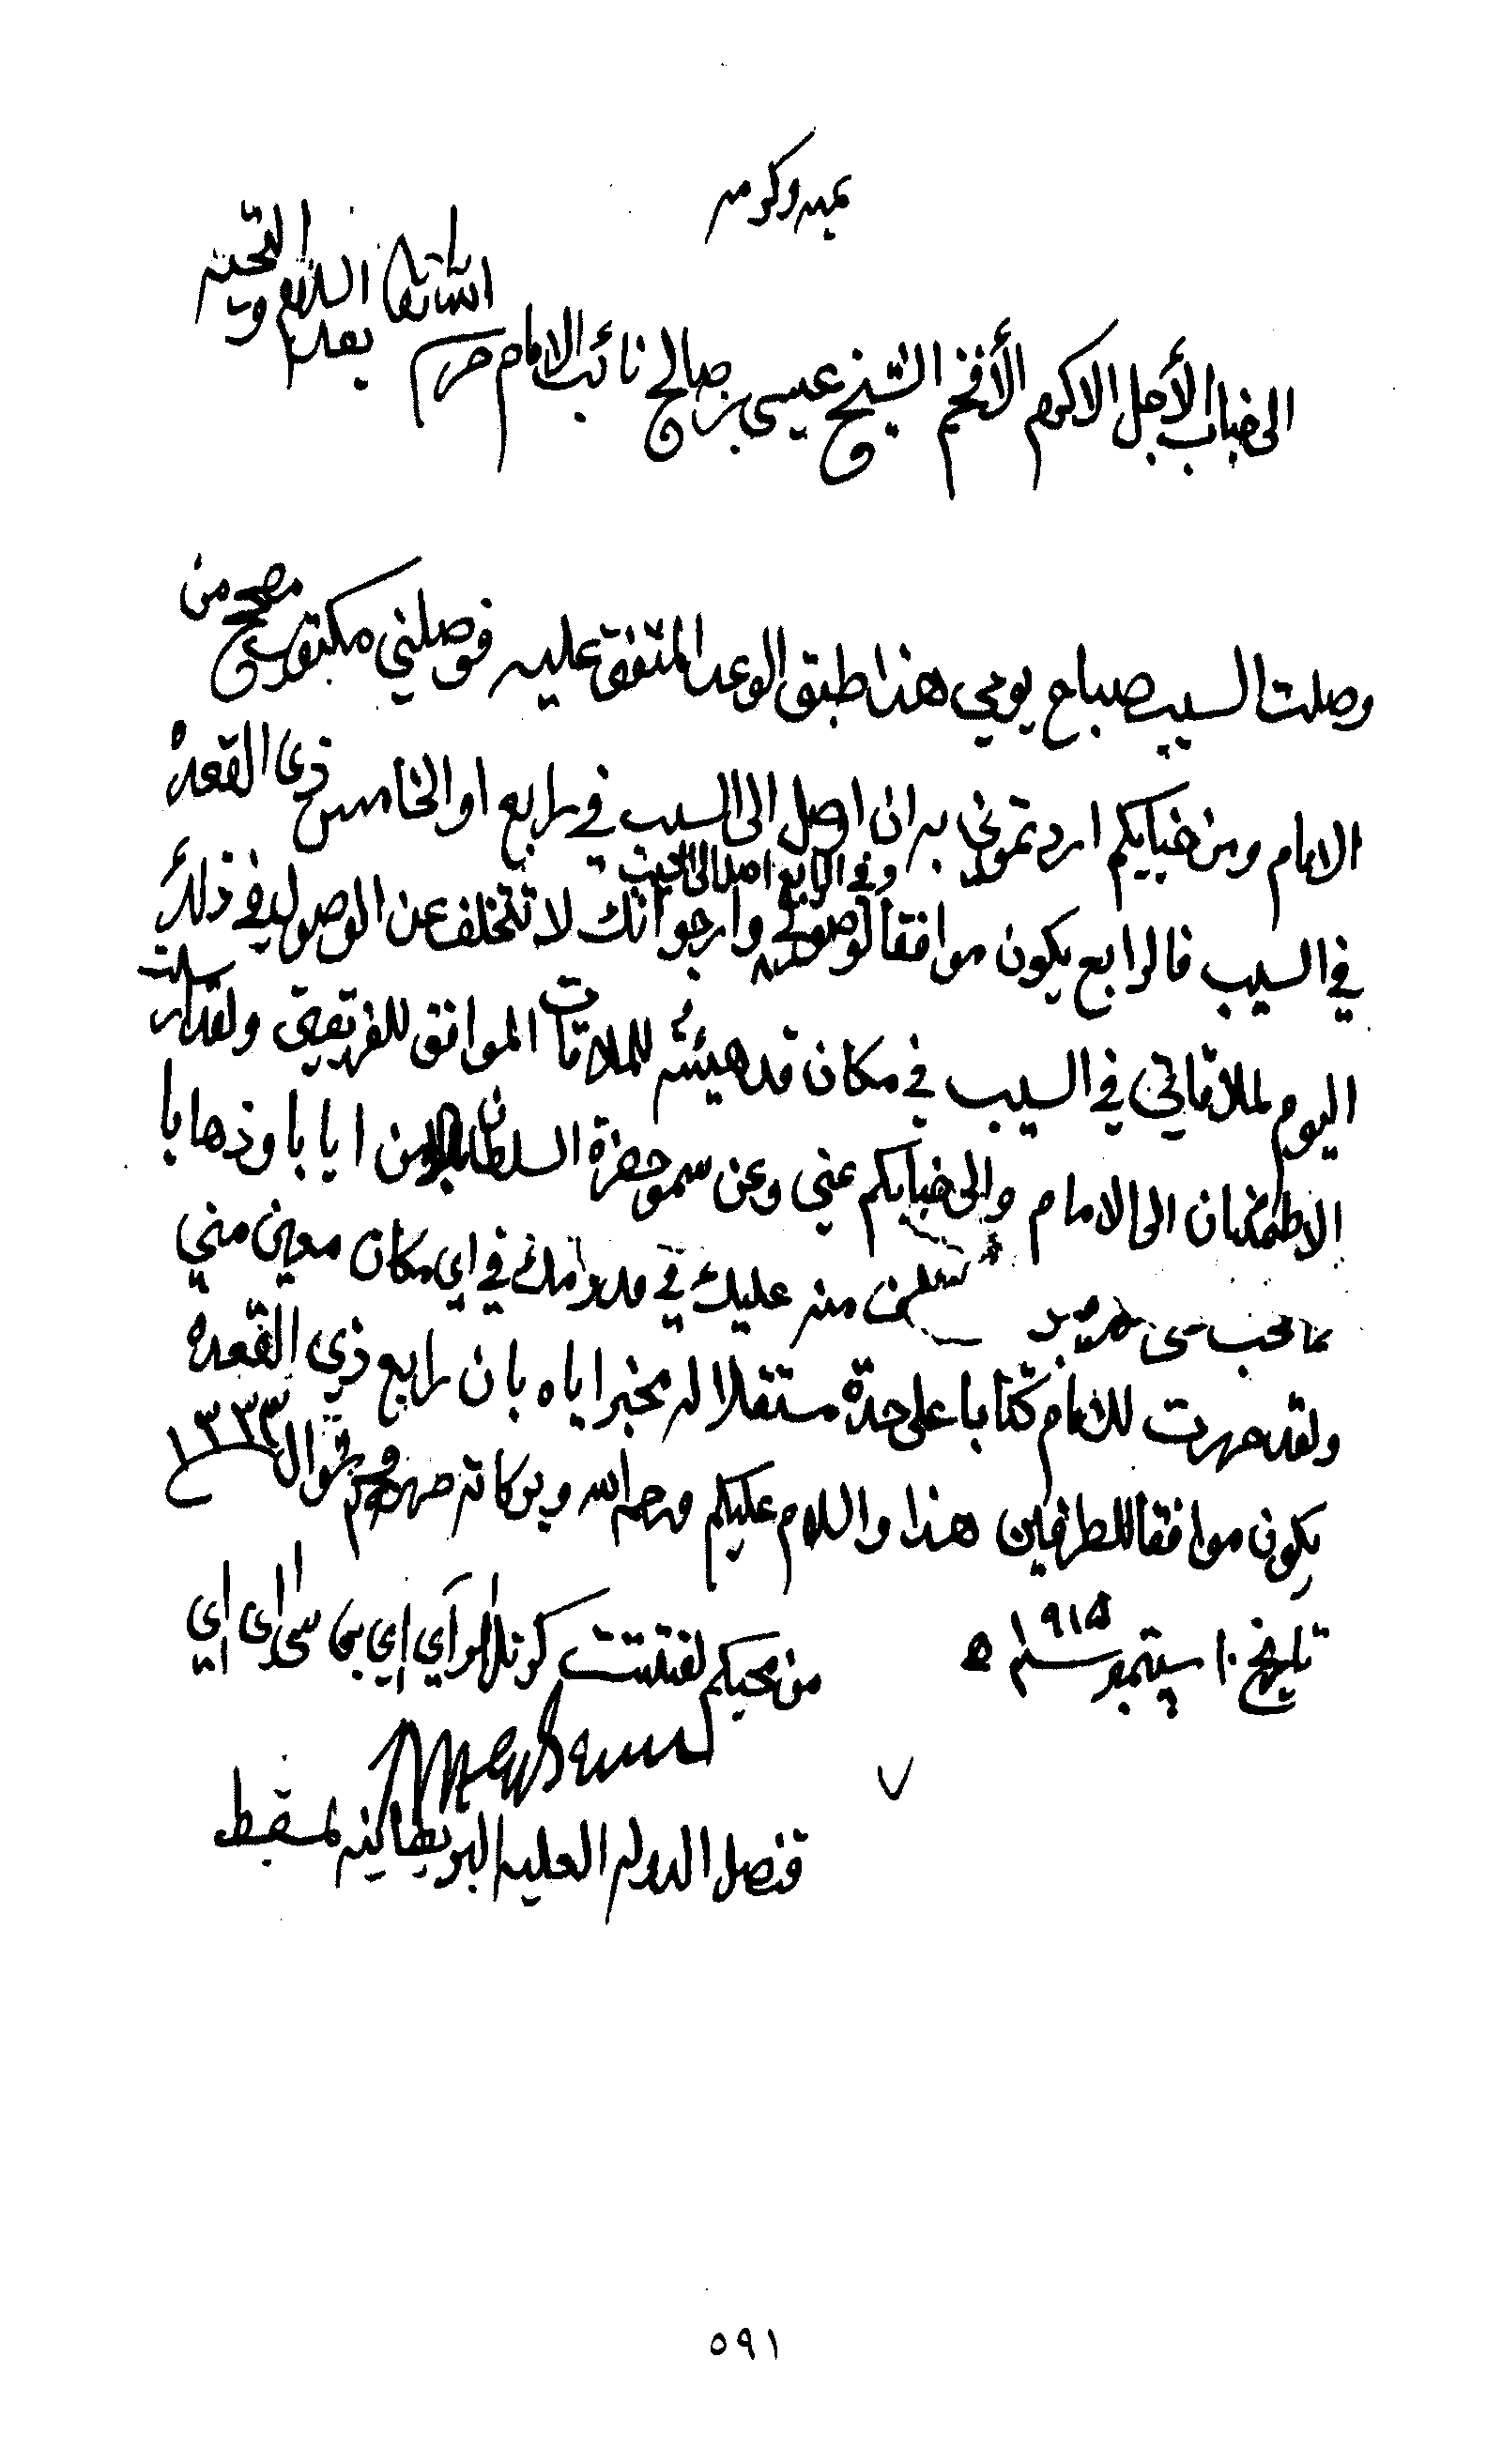 بمنه وكرمه
الى جناب الأجل الاكرم الأفخم الشيخ عيسى بن صالح نائب الامام حرسه
الله تعالى السلام والتحية
وبعد
وصلت السيب صباح يومي هذا طبق الوعد المتفق عليه فوصلني مكتوب صحيح من
الامام ومن جنابكم اردتموني به ان اوصل الى السيب في رابع او الخامس ذي القعده
وفي الرابع
في السيب فالرابع يكون موافقا لوصولي وارجو انك لا تتخلف عن الوصول في ذلك
اليوم لملاقاتي في السيب في مكان قد هيئته للملاقات الموافق للفريقين ولقد ارسلت
الاطمئنان الى الامام والى جنابكم عني وعن سمو حضرة السلطان ايابا وذهابا
منه عليك في في اي مكان معين مني
ولقد حررت للامام كتابا على حدة مستقلا له مخبرا اياه بان رابع ذي القعده
يكون موافقا للطرفين هذا والسلام عليكم ورحمة الله وبركاته حرر شوال ١٣٣٣
تاريخ ١٠ سپتمبر سنه ١٩١٥
من محبكم لفتننت كرنل آر اي اي بن سي اي اي
قنصل الدولة العليه البريطانيه بمسقط
٥٩١